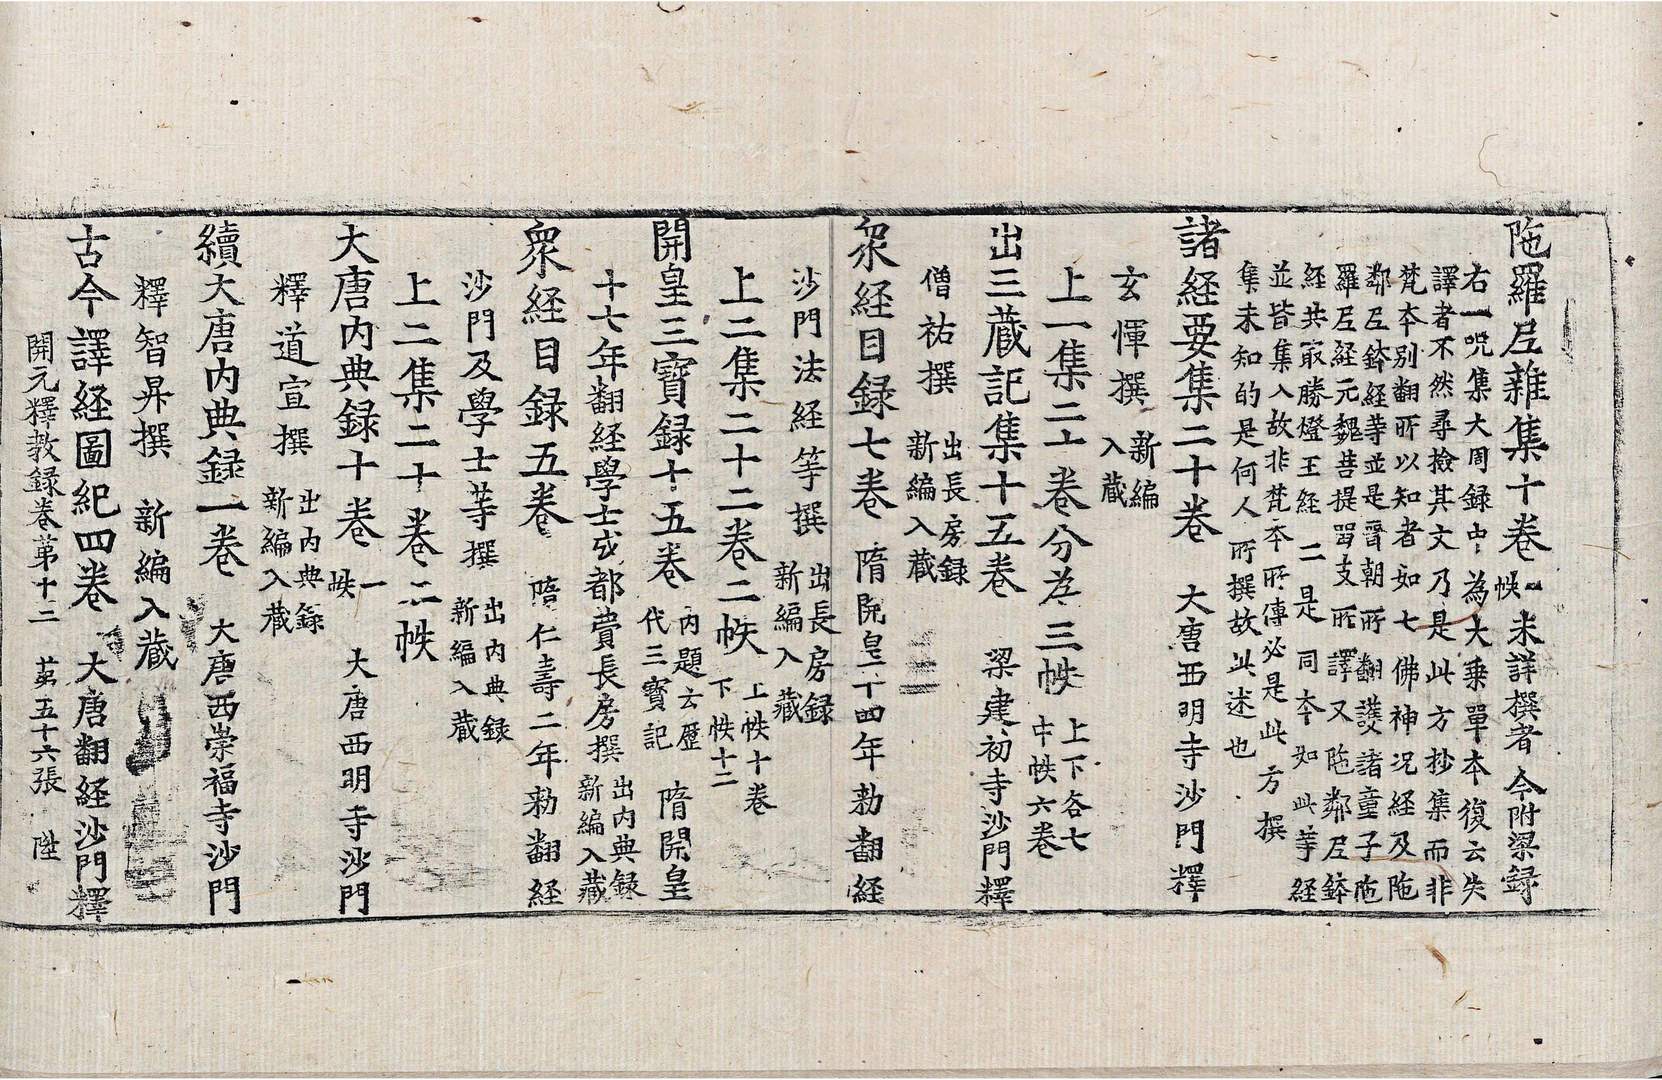 陁羅尼雜集十卷一帙未詳撰者今附梁録
右一呪集大周録中為大乗單本復云失
譯者不然尋撿其文乃是此方抄集而非
梵本别翻所以知者如七佛神况經及陁
鄰尼鉢經等並是晋朝所翻護諸童子陁
羅尼經元魏菩提畱支所譯又陁鄰尼鉢
經共㝡勝燈王經二是同本如此等經
並皆集入故非梵本所傳必是此方撰
集未知的是何人所撰故此述也
諸經要集二十卷 大唐西明寺沙門釋
玄惲撰 新編入藏
上一集二十卷分為三帙 上下各七中帙六卷
出三藏記集十五卷 梁建初寺沙門釋
僧祐撰 出長房録新編入藏
衆經目録七卷 隋開皇十四年勅翻經
沙門法經等撰 出長房録新編入藏
上二集二十二卷二帙 上帙十卷下帙十二
開皇三寳録十五卷 内題云歷代三寳記 隋開皇
十七年翻經學士成都費長房撰 出内典録新編入藏
衆經目録五卷 隋仁壽二年勅翻經
沙門及學士等撰 出内典録新編入藏
上二集二十卷二帙
大唐内典録十卷一帙 大唐西明寺沙門
釋道宣撰 出内典録新編入藏
續大唐内典録一卷 大唐西崇福寺沙門
釋智昇撰 新編入藏
古今譯經圖紀四卷 大唐翻經沙門釋
開元釋教録卷苐十三 苐五十六張 陞